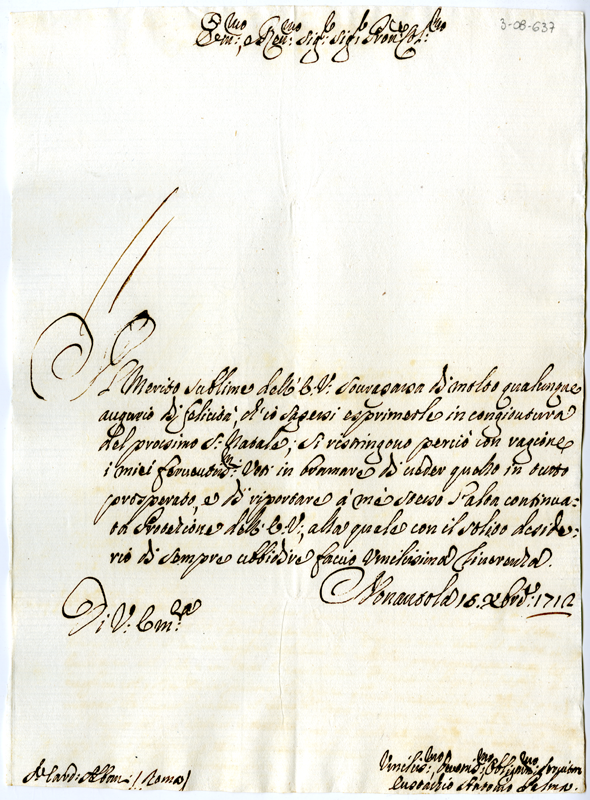 3-08-637
Em.mo, e Rev.mo Sig.re Sig.re Pron Col.mo
Il Merito sublime dell'E.V. sourapassa di molto qualunque
augurio di felicità, ch'io sapessi esprimerle in congiontura
del prossimo S. Natale; si restringono perciò con ragione
i miei ferventiss.mi Voti in bramare di veder quello in tutto
prosperato, e di riportare à me stesso l'alta continua-
ta Protezione dell'E.V., alla quale con il solito deside-
rio di sempre ubbidire faccio Umilissima Riverenza.
Nonantola 15. Xbre: 1712
Di V. Em.za
Sr Card: Albani (Roma)
Umiliss.mo Devotiss.mo Obligatiss.mo Servitore
Antonio